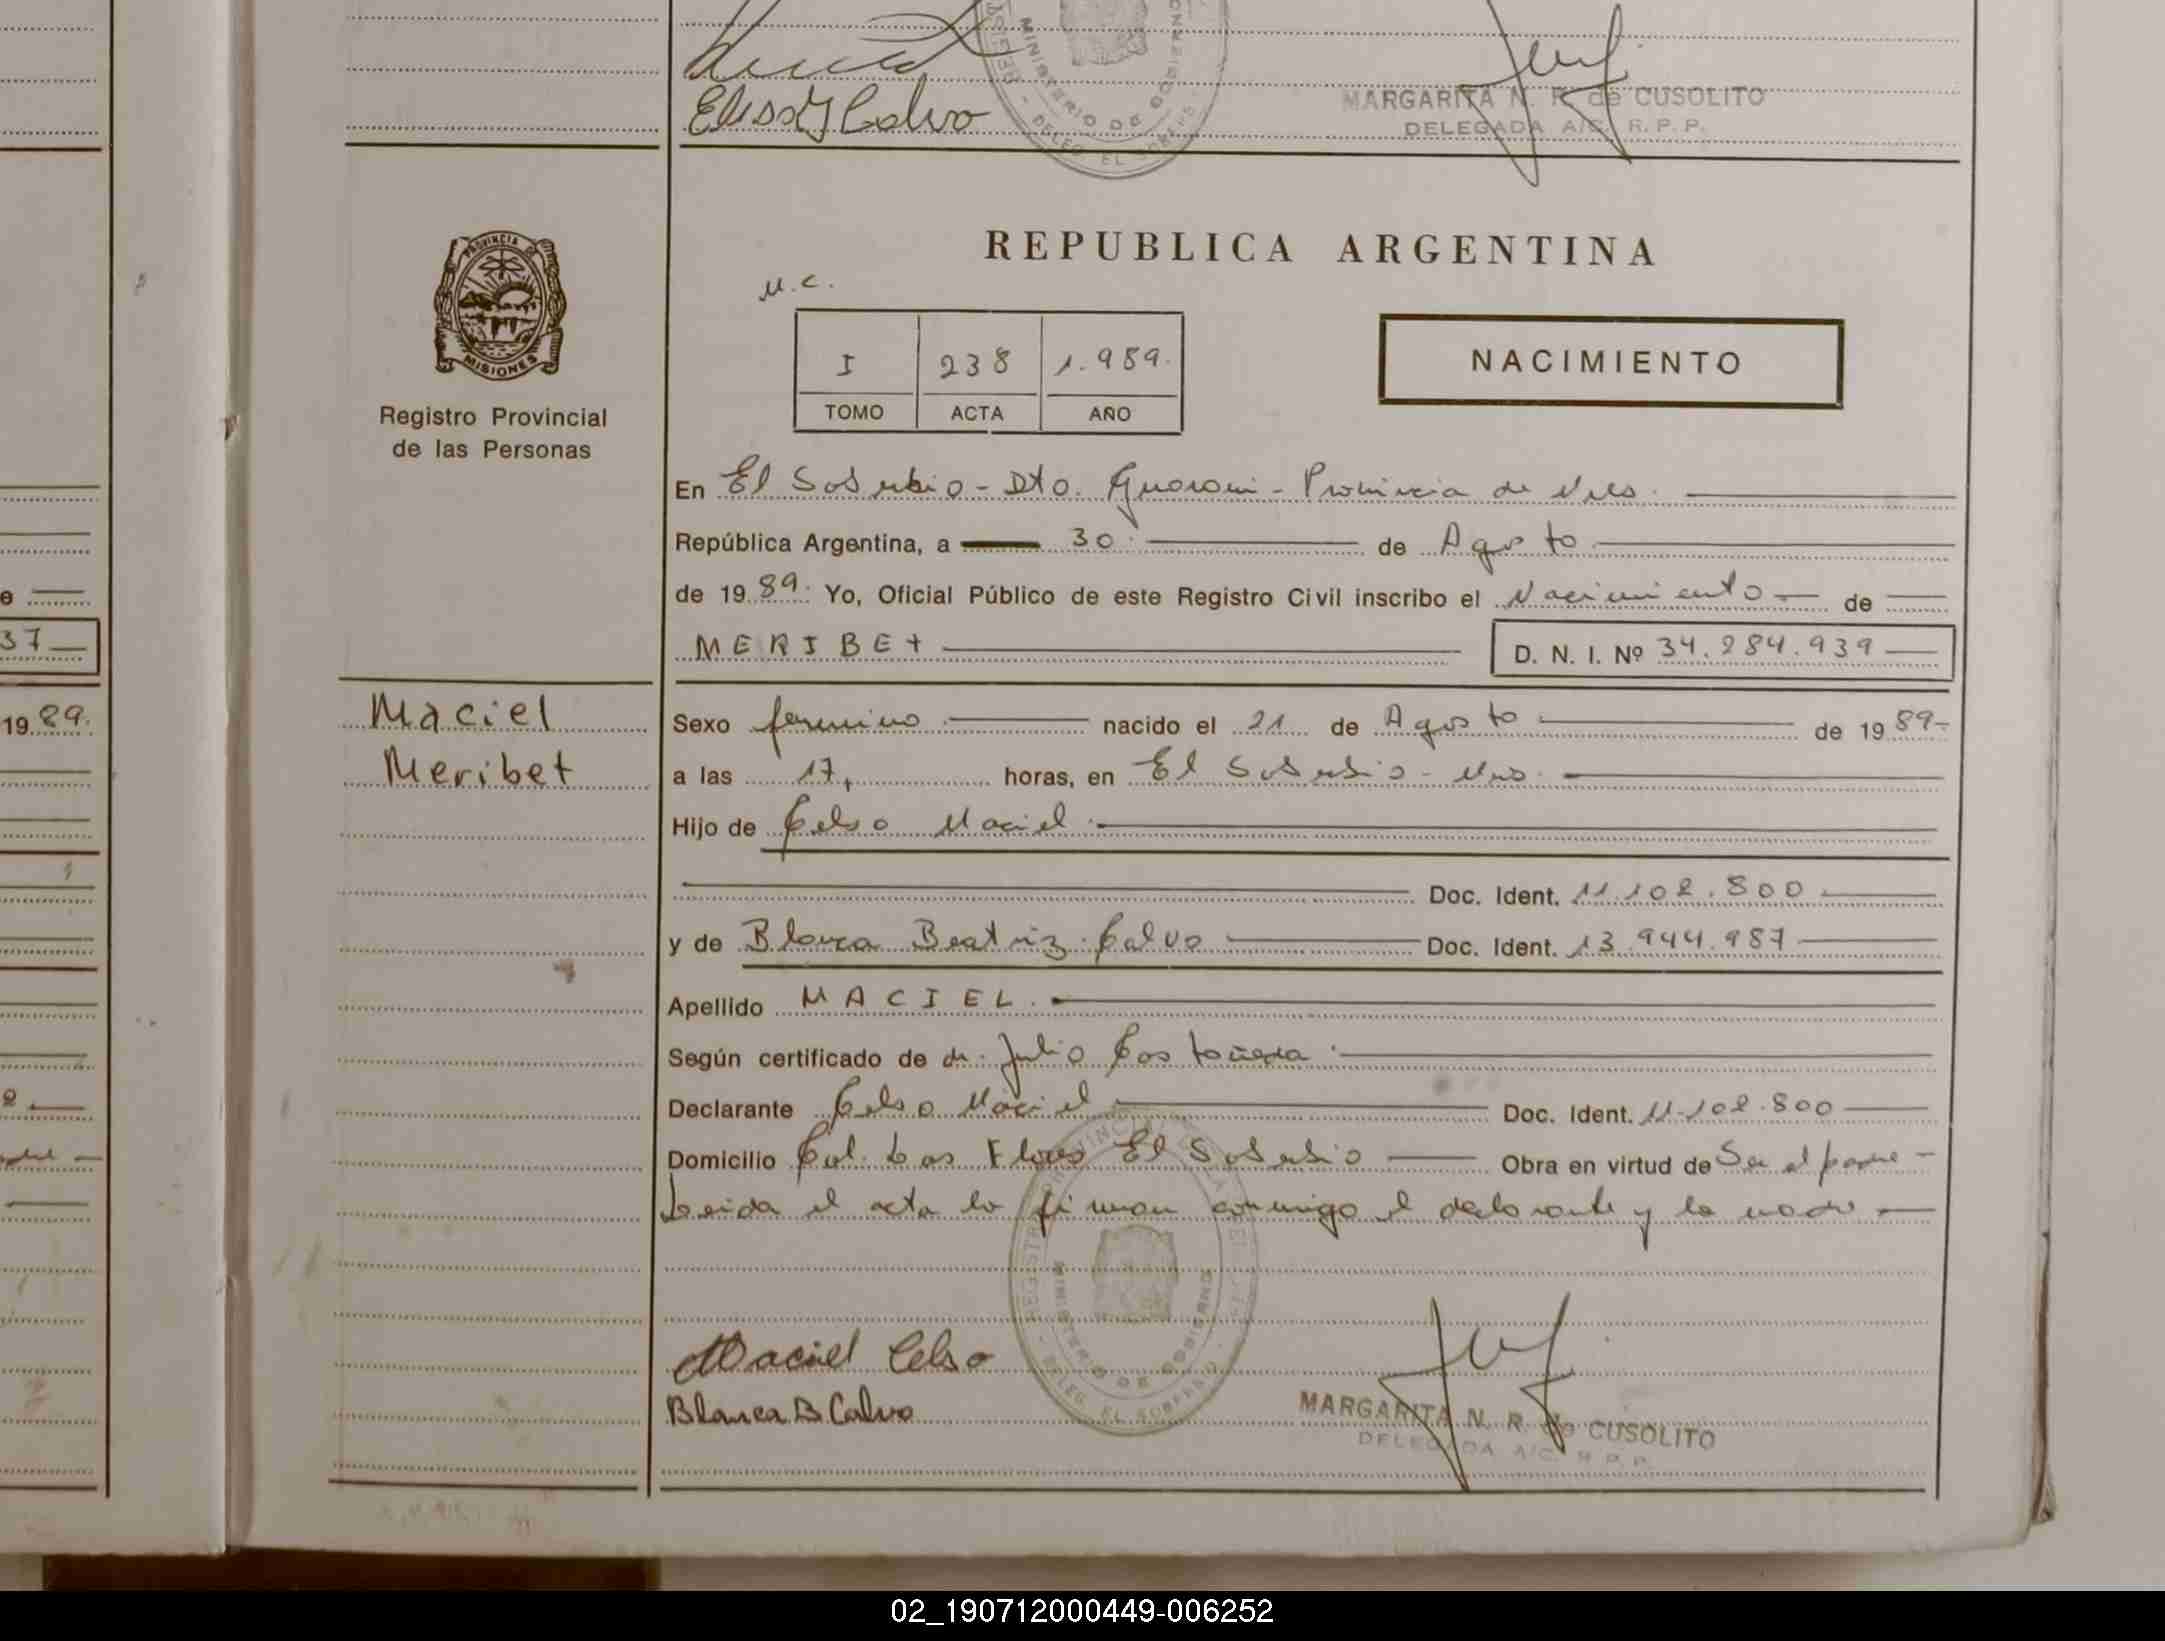 Elisa Y Calvo
MINISTERIO DE GOBIERNO
DELEG EL SOBERBIO
MARGARITA N. R. de CUSOLITO
DELEGADA A/C. R. P. P.
PROVINCIA DE
MISIONES
Registro Provincial
de las Personas
REPUBLICA ARGENTINA
M.C.
I 238 1.989.
TOMO ACTA AÑO
NACIMIENTO
En El Soberbio - Dto. Guarani - Provincia de Mnes.
República Argentina, a 30 de Agosto
de 1989. Yo, Oficial Público de este Registro Civil inscribo el Nacimiento de
MERIBET D. N. I. Nº 34.284.939
e
37
1989.
Maciel
Meribet
Sexo femenino nacido el 21 de Agosto de 1989-
a las 17, horas, en El Soberbio - Mnes.
Hijo de Celso Maciel
Doc. Ident. 11.102.800
y de Blanca Beatriz Calvo Doc. Ident. 13.944.987
Apellido MACIEL.
Según certificado de dr. Julio Castañeda
Declarante Celso Maciel Doc. Ident. 11.102.800
Domicilio Col. Las Flores El Soberbio Obra en virtud de Ser el padre -
Leida el acta la firman conmigo el declarante y la madre
MINISTERIO DE GOBIERNO
DELEG EL SOBERBIO
Maciel Celso
Blanca B Calvo
MARGARITA N. R. de CUSOLITO
DELEGADA A/C. R. P. P.
02_190712000449-006252